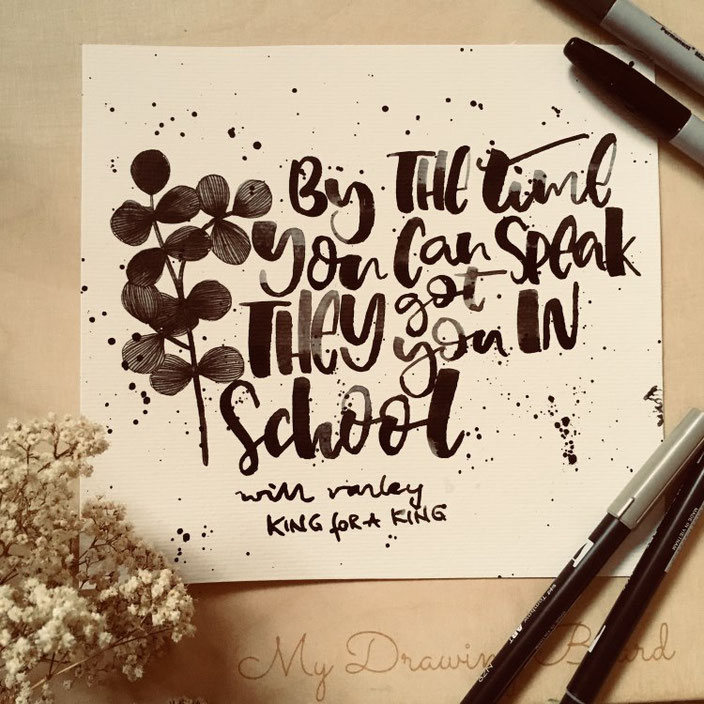 By THE time
you can speak
THEY got
you IN
School
will varley
KING foR A KING
My Drawing Board